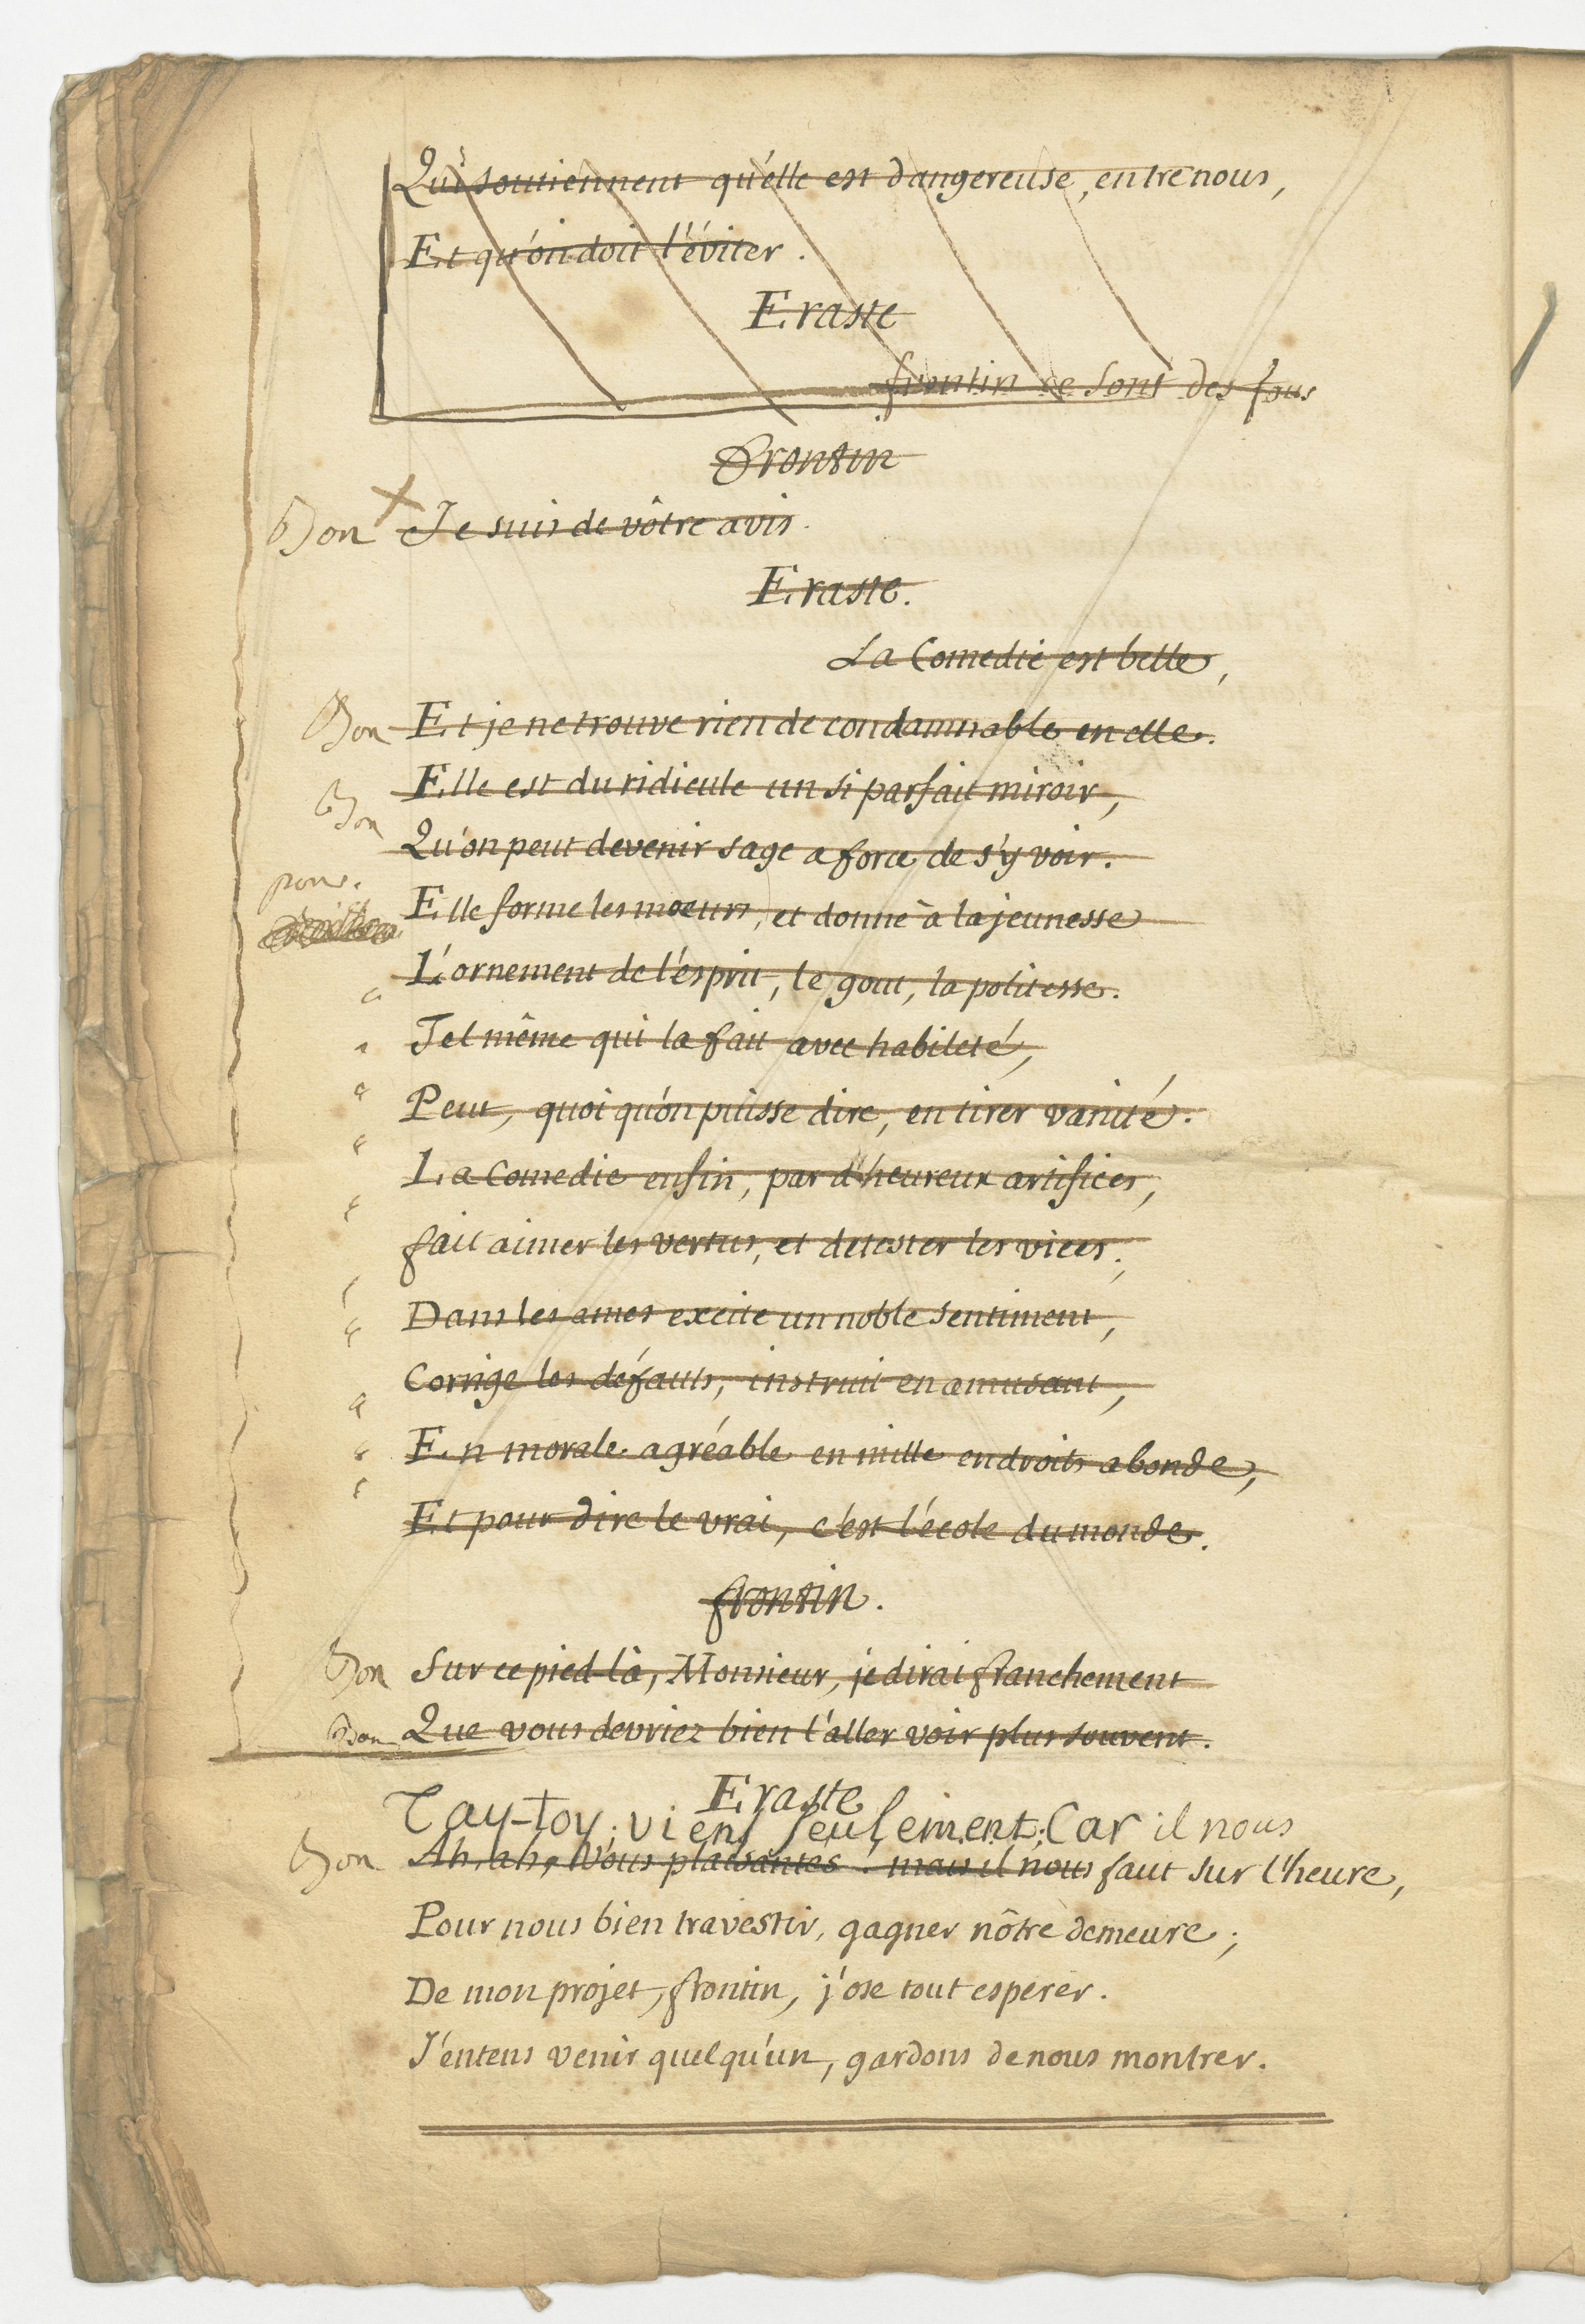 Qui soutiennent qu'elle est dangereuse, entre nous,
Et qu'on doit l'éviter.
Eraste
frontin ce sont des fous
Frontin
Bon Je suis de vôtre avis.
Eraste.
La Comedie est belle,
Bon Et je ne trouve rien de condamnable en elle.
Bon Elle est du ridicule un si parfait miroir,
Qu'on peut devenir sage a force de s'y voir.
Elle forme les moeurs, et donne à la jeunesse
L'ornement de l'ésprit, le gout, la politesse.
Tel même qui la fait avec habileté,
Peut, quoi qu'on puisse dire, en tirer vanité.
La Comedie enfin, par d'heureux artifices,
fait aimer les vertus, et detester les vices;
Dans les ames excite un noble sentiment,
Corrige les défauts, instruit en amusant,
En morale agréable en mille endroits abonde,
Et pour dire le vrai, c'est l'école du monde.
frontin.
Bon Sur ce pied-là, Monsieur, je dirai franchement
Bon Que vous devriez bien l'aller voir plus souvent.
Eraste
Tay-toy. viens seulement. Car il nous
Bon Ah, ah, Vous plaisantes! mais il nous faut sur l'heure,
Pour nous bien travestir, gagner nôtre demeure;
De mon projet, frontin, j'ose tout esperer.
J'entens venir quelqu'un, gardons de nous montrer.